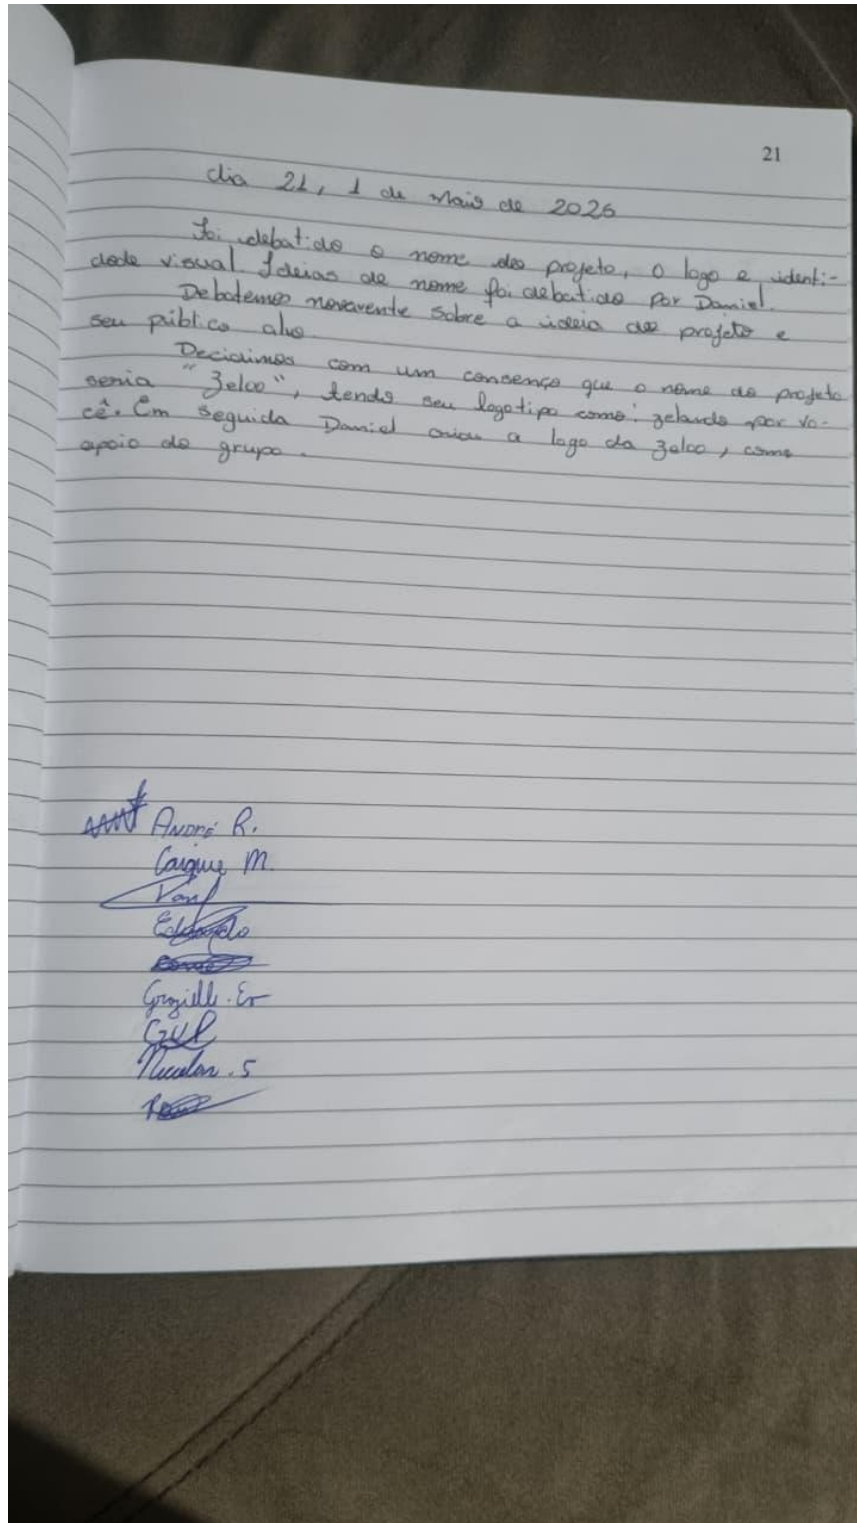 21
dia 21, 1 de Maio de 2026
Foi debatido o nome do projeto, o logo e identi-
dade visual. Ideias de nome foi debatido por Daniel.
Debatemos novavente sobre a ideia do projeto e
seu público alvo.
Decidimos com um consenço que o nome do projeto
seria "Zeloo", tendo seu logotipo como: zelando por vo-
cê. Em seguida Daniel criou a logo da Zeloo, como
apoio do grupo.
André R.
Caique M.
Eduardo
Grazielle